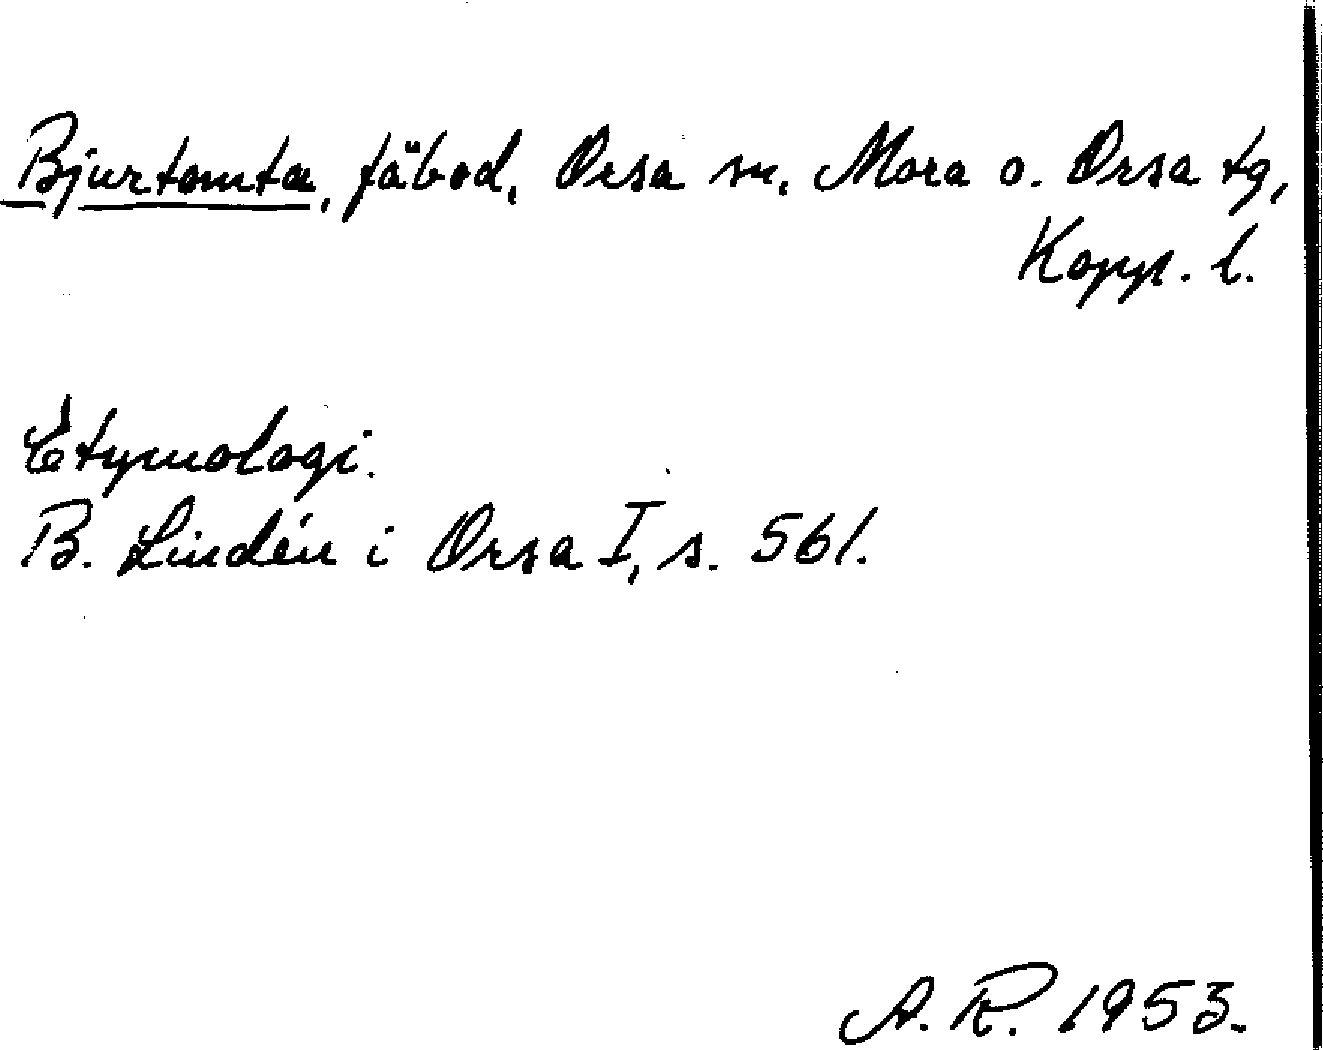 Bjurtomta, fäbod, Orsa sn, Mora o. Orsa tg,
Kopp. l.
Etymologi.
B. Lindén i Orsa I, s. 561.
A. R. 1953.